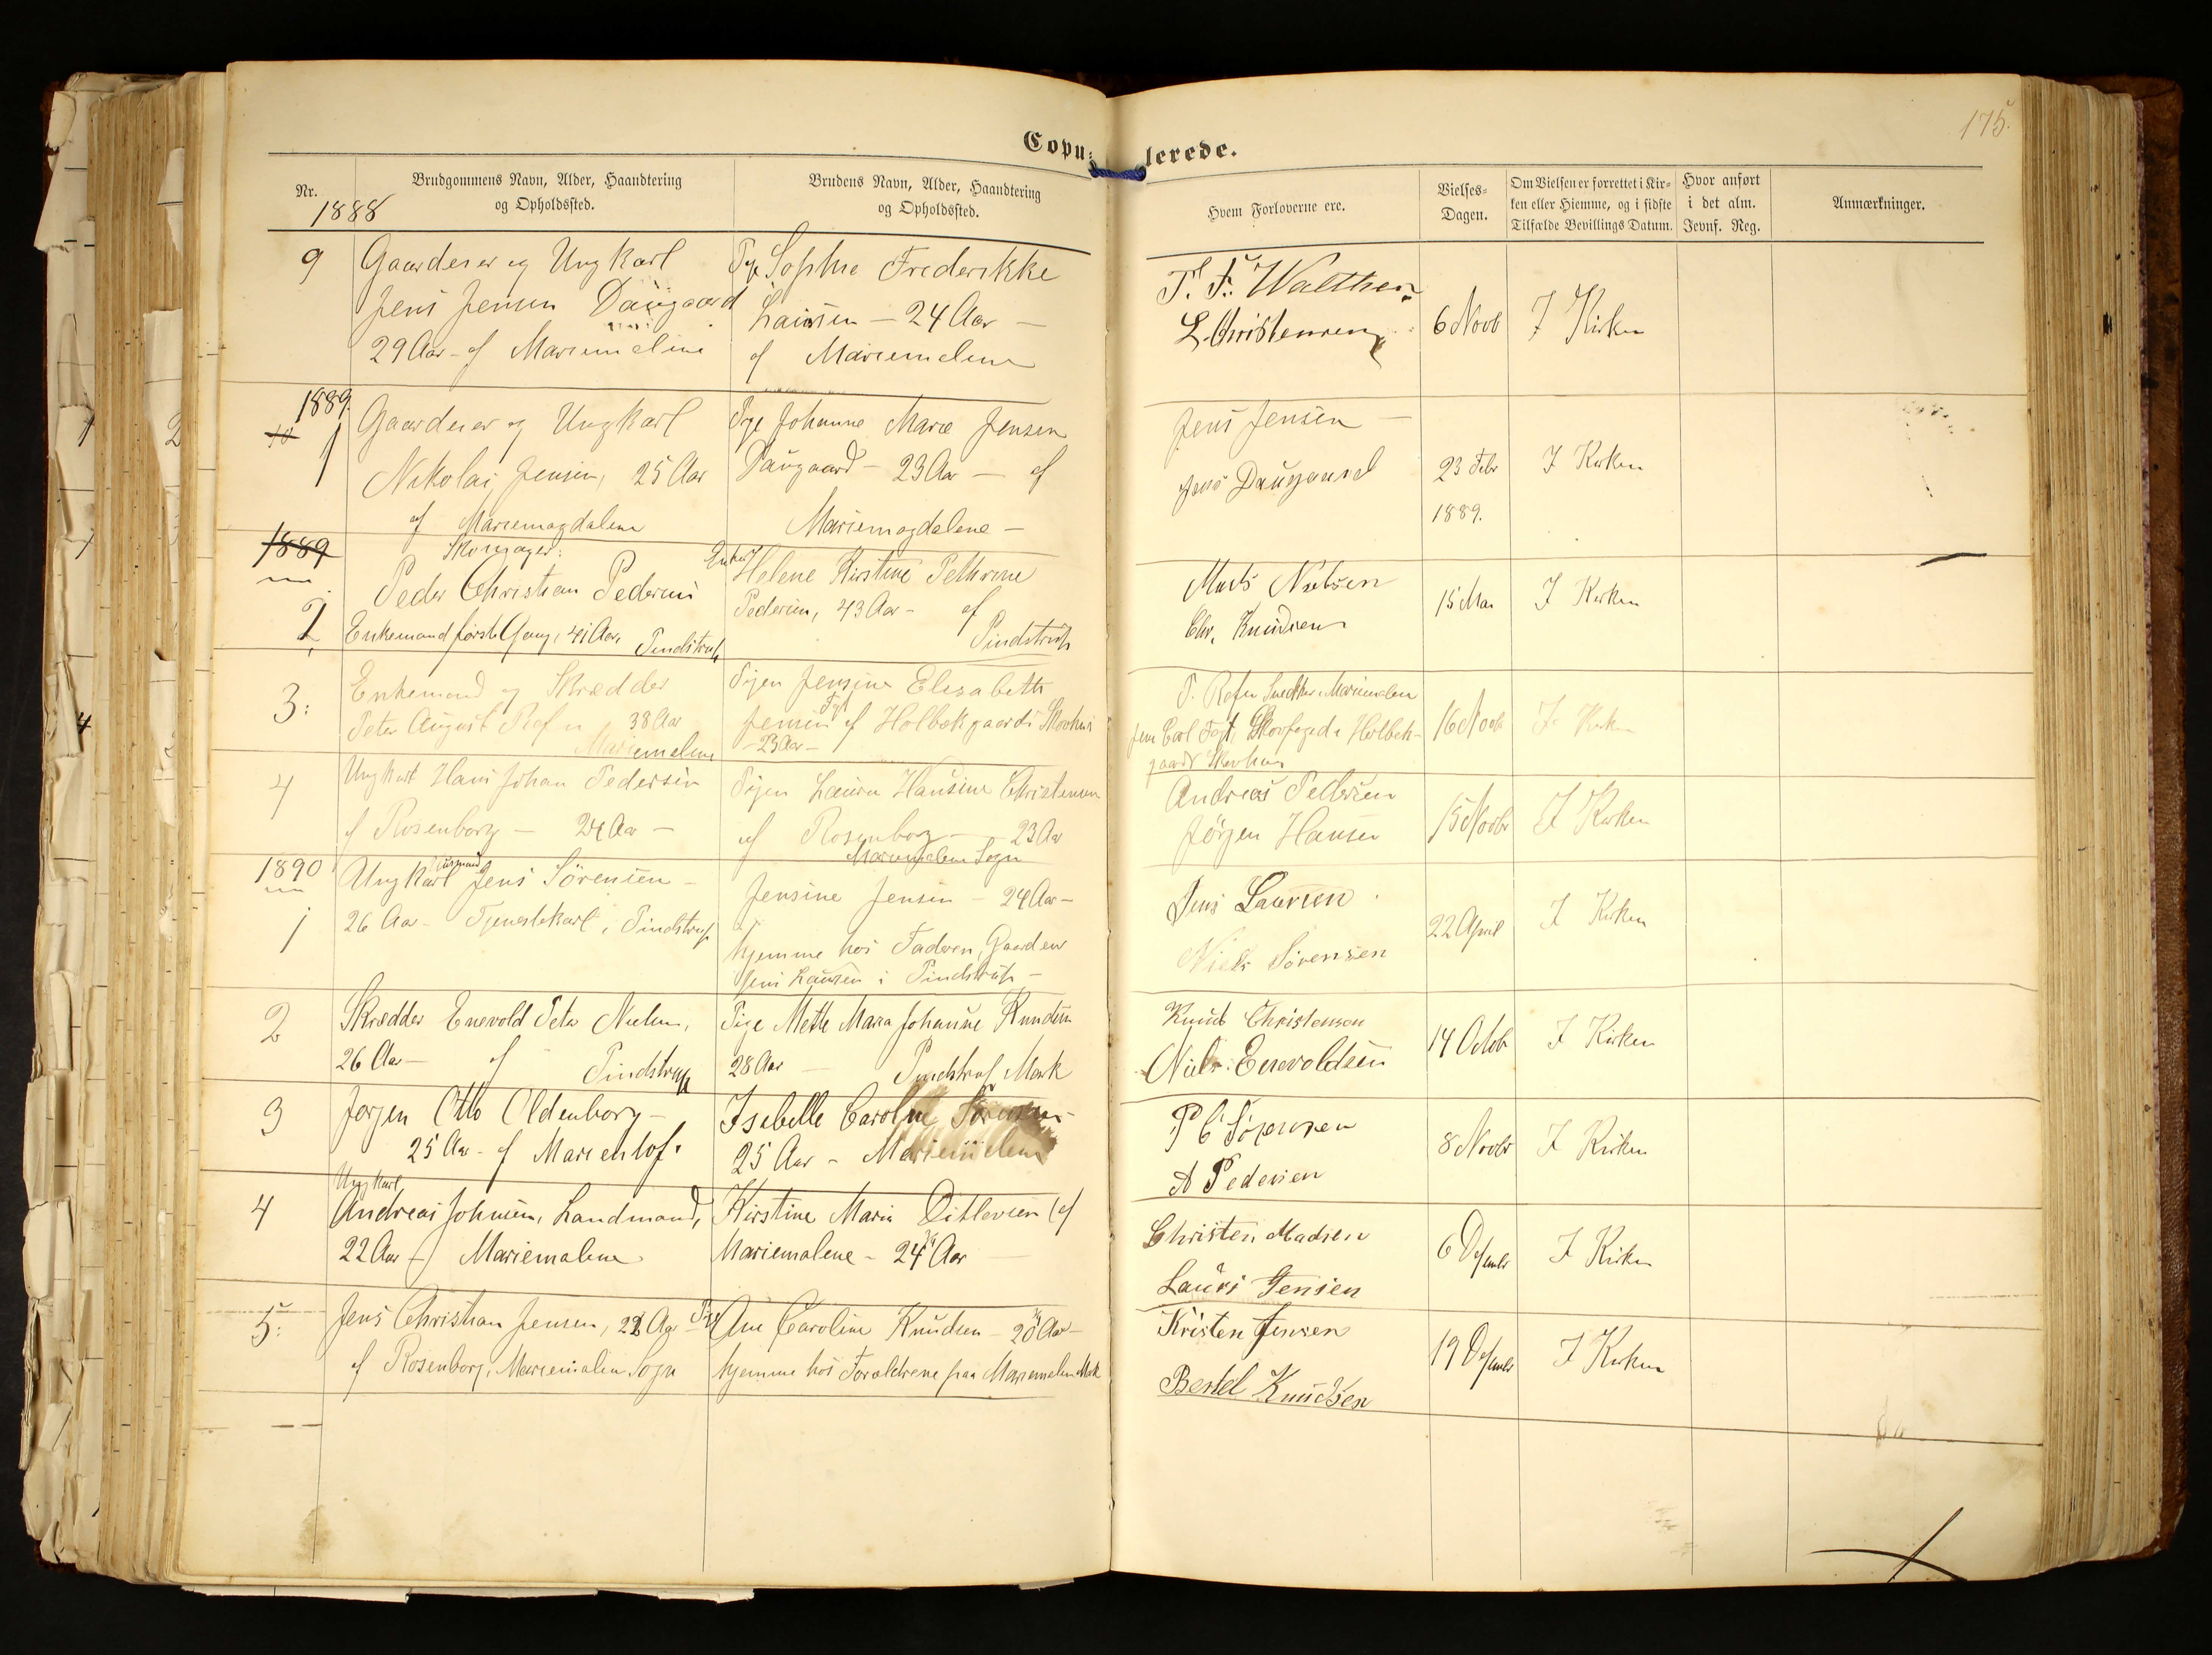 175.
Copu=
lerede.
Nr.
Brudgommens Navn, Alder, Haandtering
og Opholdssted.
Brudens Navn, Alder, Haandtering
og Opholdssted.
Hvem Forloverne ere.
Vielses=
Dagen.
Om Vielsen er forrettet i Kir=
ken eller Hiemme, og i sidste
Tilfælde Bevillings Datum.
Hvor anført
i det alm.
Jevnf. Reg.
Anmærkninger.
1888
9
Gaardeier og Ungkarl
Jens Jensen Daugaard
29 Aar - af
Pige Sophie Frederikke
Laursen - 24 Aar -
af
L. Christensen
6 Novb
I Kirken
1889
10
1
Gaardeier og Ungkarl
Nikolaj Jensen, 25 Aar
af Mariemagdalene
Pige Johanne Marie Jensen
Daugaard - 23 Aar - af
Mariemagdalene -
Jens Jensen -
Jens Daugaard
23 Febr
1889.
I Kirken
1889
2
Skomager:
Peder Christian Pedersen
Enkemand første Gang, 41 Aar, Pindstrup
Enken
Helene Kirstine Pethrine
Pedersen, 43 Aar - af
Pindstrup
Mads Nielsen
Chr. Knudsen
15 Mai
I Kirken
3:
Enkemand og Skrædder
Peter August 38 Aar
Mariemalene
Pigen Jensine Elisabeth
Jensen Fogt af Holbækgaards Skovhus
- 23 Aar -
Jens Carl Fogt, Skovfoged i Holbæk-
gaards Skovhus
16 Novb
I Kirken
4
Ungkarl Hans Johan Pedersen
af Rosenborg - 24 Aar -
Pigen Laura Hansine Christensen
af Rosenborg - 23 Aar
Mariemalene Sogn
Andreas Pedersen
Jörgen Hansen
15 Novbr
I Kirken
1890
1
Ungkarl Husmand Jens Sörensen -
26 Aar - Tjenestekarl i Pindstrup
Jensine Jensen - 24 Aar -
hjemme hos Faderen, Gaardeier
Jens Laursen i Pindstrup -
Jens Laursen
Niels Sörensen
22 April
I Kirken
2
Skrædder Enevold Peter Nielsen,
26 Aar - af Pindstrup
Pige Mette Maria Johanne Knudsen
28 Aar - Pindstrup Mark
Knud Christensen
Niels Enevoldsen
14 Octob
I Kirken
3
Jørgen Otto Oldenborg -
25 Aar - af Marienhof.
Isabelle Caroline Sørensen -
25 Aar - Mariemalene
P C Sørensen
A Pedersen
8 Novbr
I Kirken
4
Ungkarl
Andreas Johnsen, Landmand,
22 Aar af Mariemalene
Kirstine Marie Ditlevsen (af
Mariemalene - 24 Aar
Christen Madsen
Laurs Jensen
6 Decembr
I Kirken
5:
Jens Christian Jensen, 22 Aar -
af Rosenborg, Mariemalene Sogn
Pige Ane Caroline Knudsen - 20 Aar -
hjemme hos Forældrene paa Mariemalene Mark
Kristen Jensen
Bertel Knudsen
19 Decembr
I Kirken